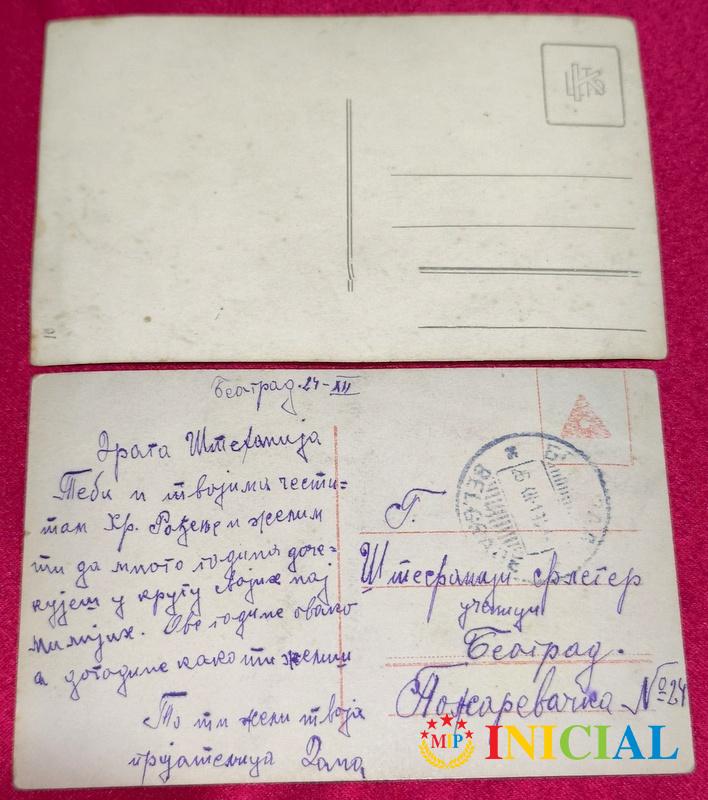 10
Београд. 24-XII
Драга Штефанија
Теби и твојима чести-
там Хр. Рођење и желим
ти да много година доче-
кујеш у кругу својих нај
милијих. Ове године овако
а догодине како ти желиш
То ти жели твоја
пријатељица
Г.
Штефанији
ученици
Београд.
Пожаревачка № 24
MP INICIAL